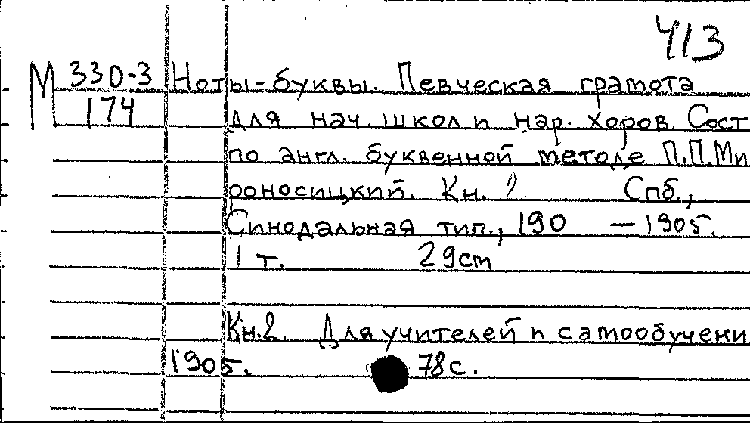 413
М 330-3 Ноты-буквы. Певческая грамота
174 для нач. школ и нар. хоров. Сост
по англ. буквенной методе П.П.Ми
роносицкий. Кн. Спб.,
Синодальная тип., 190 — 1905.
1 т. 29см
Кн.2. Для учителей и самообучени
1905. 78с.